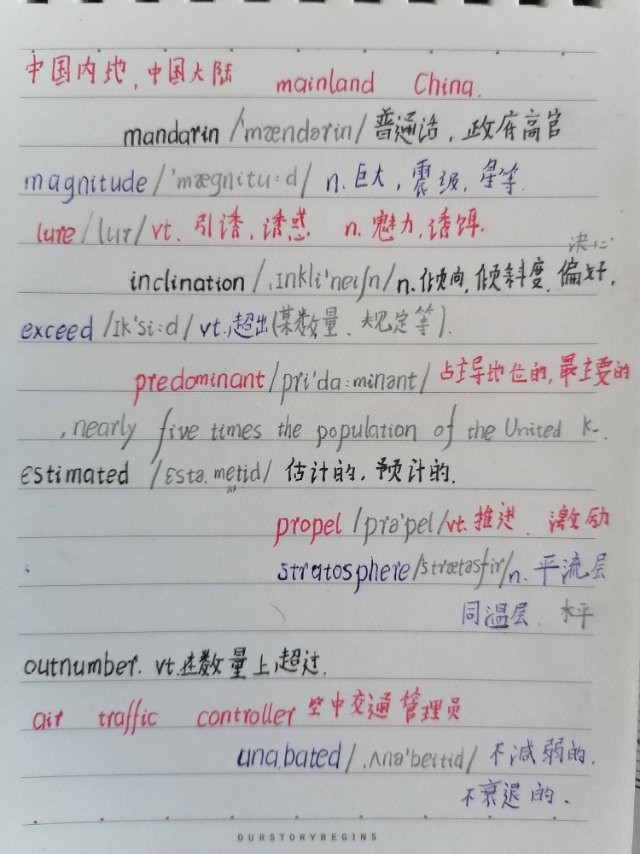 中国内地,中国大陆 mainland China.
mandarin /'mændərin/ 普通话,政府高官
magnitude /'mægnitu:d/ n. 巨大,震级,星等.
lure /lur/ vt. 引诱,诱惑 n. 魅力,诱饵.
决心
inclination /,ɪnkli'neiʃn/ n. 倾向,倾斜度,偏好,
exceed /ɪk'si:d/ vt.超出(某数量、规定等).
predominant /pri'da:minənt/ 占主导地位的,最主要的
,nearly five times the population of the United K-.
estimated /ɛstə.metid/ 估计的,预计的.
propel /prə'pel/ vt.推进、激励
stratosphere /strætəsfir/ n. 平流层
同温层、水平
outnumber. vt.在数量上超过.
air traffic controller 空中交通管理员
unabated /,ʌnə'beitid/ 不减弱的,
不衰退的.
OURSTORYBEGINS